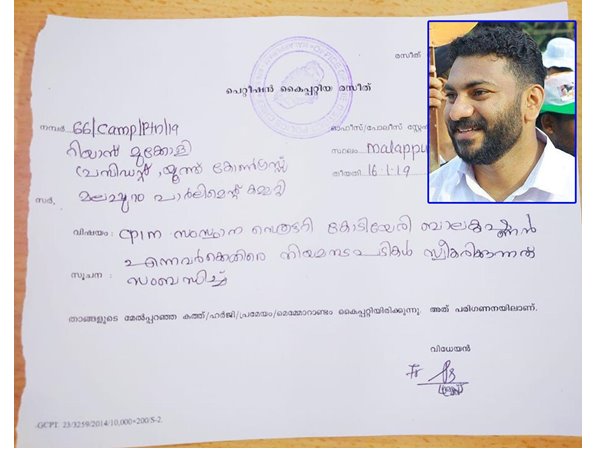 രസീത്
പെറ്റീഷൻ കൈപ്പറ്റിയ രസീത്
നമ്പർ 66/Camp/Ptn/19
ഓഫീസ്/പോലീസ് സ്റ്റേ
റിയാസ് മുക്കോളി
സ്ഥലം malappu
പ്രസിഡന്റ്, യൂത്ത് കോൺഗ്രസ്സ്
തീയതി 16.1.19
സർ, മലപ്പുറം പാർലിമെന്റ് കമ്മറ്റി
വിഷയം: CPIM സംസ്ഥാന സെക്രട്ടറി കോടിയേരി ബാലകൃഷ്ണൻ
എന്നവർക്കെതിരെ നിയമനടപടികൾ സ്വീകരിക്കുന്നത്
സൂചന : സംബന്ധിച്ച്
താങ്ങളുടെ മേൽപ്പറഞ്ഞ കത്ത്/ഹർജി/പ്രമേയം/മെമ്മോറാണ്ടം കൈപ്പറ്റിയിരിക്കുന്നു. അത് പരിഗണനയിലാണ്.
വിധേയൻ
GCPT. 23/3259/2014/10,000×200/S-2.